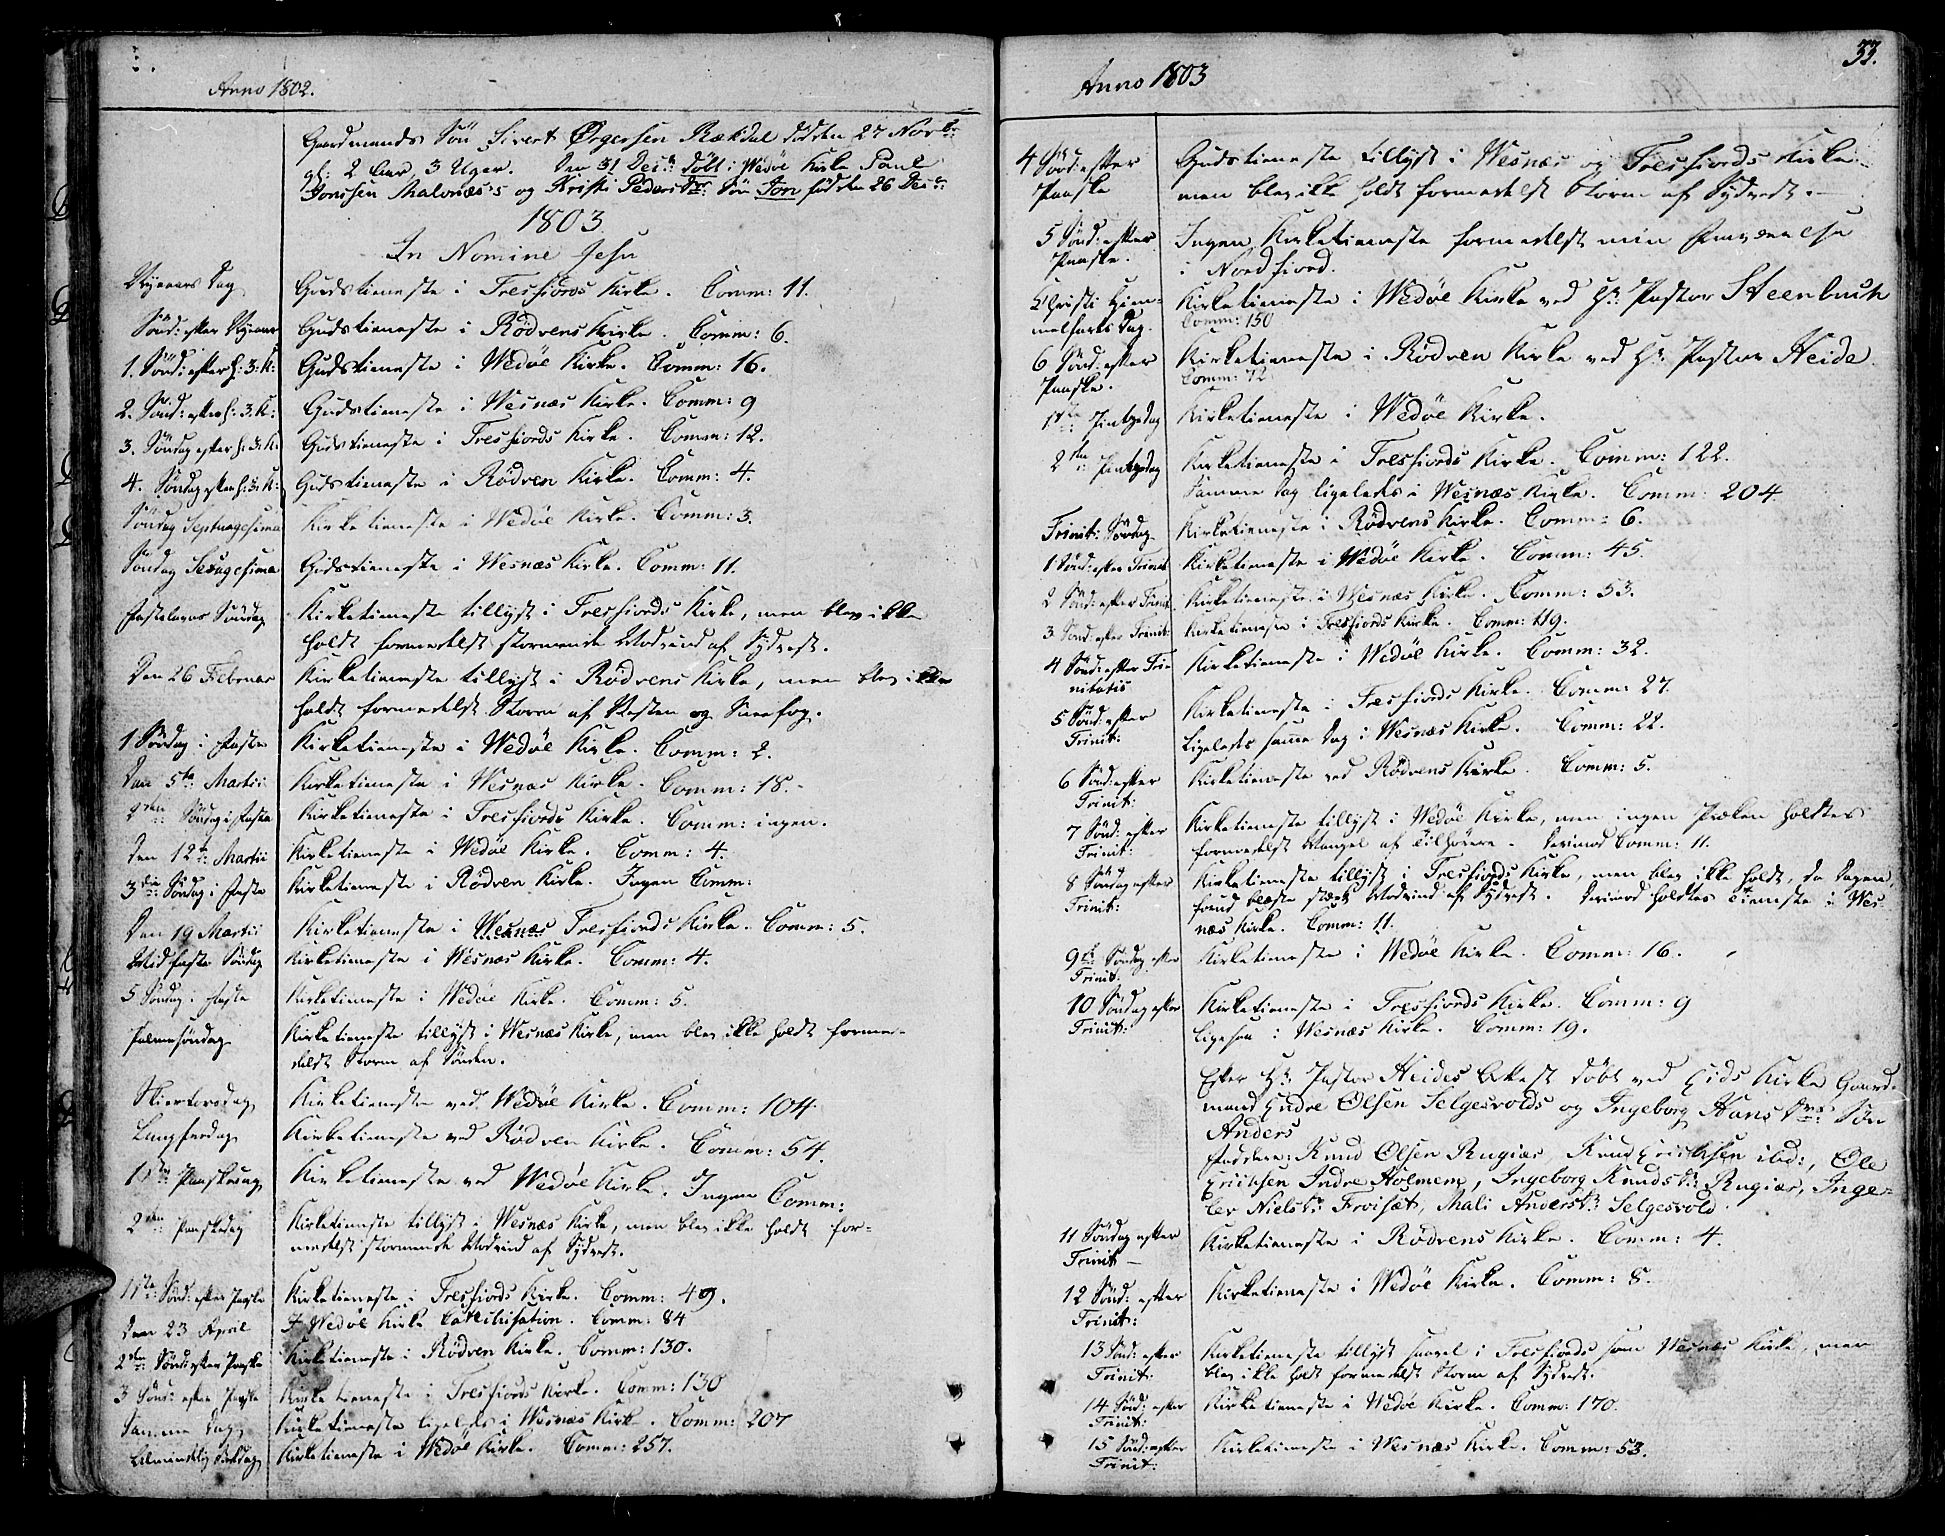 Anno 1802.
Gaardmands Søn Sivert Ørgersen Rækdal død den 27 Novbr:
gl: 2 Aar, 3 Uger. Den 31 Decb: døbt i Wedøe Kirke Poul
Jonssen Malonæs's og Kristi Pedersdr: Søn Jon født den 26 Decbr:
1803
In Nomine Jesu
Nyeaars Dag Gudstieneste i Tresfiords Kirke. Comm: 11.
Sönd: efter Nyeaar Gudstieneste i Rödvens Kirke. Comm: 6.
1. Sönd: efter H: 3: K: Gudstieneste i Wedöe Kirke. Comm: 16.
2. Sönd: efter H: 3: K: Gudstieneste i Wesnæs Kirke. Comm: 9
3. Söndag efter H: 3: K: Gudstieneste i Tresfiords Kirke. Comm: 12.
4. Söndag efter H: 3: K: Gudstieneste i Rödven Kirke. Comm: 4.
Söndag Septuagesima Kirketieneste i Wedöe Kirke. Comm: 3.
Söndag Sexagesima Gudstieneste i Wesnæs Kirke. Comm: 11.
Fastelavns Söndag Kirketieneste tillyst i Tresfiords Kirke, men blev ikke
holdt formedelst stormende Modvind af Sydvest.
Den 26 Februar Kirketieneste tillyst i Rödvens Kirke, men blev ikke
holdt formedelst Storm af Vesten og Sneefog.
1 Söndag i Faste Kirketieneste i Wedöe Kirke. Comm: 2.
Den 5te Martii Kirketieneste i Wesnæs Kirke. Comm: 18.
2den Söndag i Faste Kirketieneste i Tresfiords Kirke. Comm: ingen.
Den 12te Martii Kirketieneste i Wedöe Kirke. Comm: 4.
3die Söndag i Faste Kirketieneste i Rödven Kirke. Ingen Comm:
Den 19 Martii Kirketieneste i Wesnæs Tresfiords Kirke. Comm: 5.
Midfaste Söndag Kirketieneste i Wesnæs Kirke. Comm: 4.
5 Söndag i Faste Kirketieneste i Wedöe Kirke. Comm: 5.
Palmesöndag Kirketieneste tillyst i Wesnæs Kirke, men blev ikke holdt forme-
delst Storm af Sönden.
Skiertorsdag Kirketieneste ved Wedöe Kirke. Comm: 104.
Langfredag Kirketieneste ved Rödven Kirke. Comm: 54.
1ste Paaskedag Kirketieneste ved Wedöe Kirke. Ingen Comm:
2den Paaskedag Kirketieneste tillyst i Wesnæs Kirke, men blev ikke holdt for-
medelst stormende Modvind af Sydvest.
1ste Sönd: efter Paaske Kirketieneste i Tresfiords Kirke. Comm: 49.
Den 23 April I Wedöe Kirke Catechisation. Comm: 84
2den Sönd: efter Paaske Kirketieneste i Rödven Kirke. Comm: 130.
3 Sönd: efter Paaske Kirketieneste i Tresfiords Kirke. Comm: 130
Samme Dag Kirketieneste ligeledes i Wesnæs Kirke. Comm: 207
Almindelig Bededag Kirketieneste i Wedöe Kirke. Comm: 257.
33.
Anno 1803
4 Sönd: efter Paaske Gudstieneste tillyst i Wesnæs og Tresfiords Kirke
men blev ikke holdt formedelst Storm af Sydvest.
5 Sönd: efter Paaske. Ingen Kirketieneste formedelst min Nærværelse
i Nordfiord.
Christi Himmelfarts Dag. Kirketieneste i Wedöe Kirke ved Hr: Pastor Steenbuch
Comm: 150
6 Sönd: efter Paaske. Kirketieneste i Rödven Kirke ved Hr: Pastor Heide
Comm: 72
1ste Pintsedag Kirketieneste i Wedöe Kirke.
2den Pintsedag Kirketieneste i Tresfiords Kirke. Comm: 122.
Samme Dag ligeledes i Wesnæs Kirke. Comm: 204.
Trinit: Söndag Kirketieneste i Rödvens Kirke. Comm: 6.
1 Sönd: efter Trinit Kirketieneste i Wedöe Kirke. Comm: 45.
2 Sönd: efter Trinit Kirketieneste i Wesnæs Kirke. Comm: 53.
3 Sönd: efter Trinit: Kirketieneste i Tresfiords Kirke. Comm: 119.
4 Sönd: efter Trinitatis Kirketieneste i Wedöe Kirke. Comm: 32.
5 Sönd: efter Trinit: Kirketieneste i Tresfiords Kirke. Comm: 27.
Ligeledes samme Dag i Wesnæs Kirke. Comm: 22.
6 Sönd: efter Trinit: Kirketieneste ved Rödvens Kirke. Comm: 5.
7 Sönd: efter Trinit: Kirketieneste tillyst i Wedöe Kirke, men ingen Præken holdtes
formedelst Mangel af Tilhörere. Derimod Comm: 11.
8 Söndag efter Trinit: Kirketieneste tillyst i Tresfiords Kirke, men blev ikke holdt, da Dagen
forud blæste stærk Modvind af Sydvest. Derimod holdtes Tieneste i Wes-
næs Kirke. Comm: 11.
9de Söndag efter Trinit: Kirketieneste i Wedöe Kirke. Comm: 16.
10 Söndag efter Trinit: Kirketieneste i Tresfiords Kirke. Comm: 9
Ligesaa i Wesnæs Kirke. Comm: 19.
Efter Hr: Pastor Heides Attest döbt ved Eids Kirke Gaard-
mand Endre Olsen Selgesvolds og Ingeborg Hansdrs: Søn
Anders
Faddere: Knud Olsen Rugiær, Knud Erichsen ibid:, Ole
Erichsen Indre Holmem, Ingeborg Knudsdr: Rugiær, Inge-
ber Nielsdr: Froisæt, Mali Andersdr: Selgesvold.
11 Söndag efter Trinit Kirketieneste i Rödvens Kirke. Comm: 4.
12 Sönd: efter Trinit: Kirketieneste i Wedöe Kirke. Comm: 8.
13 Sönd: efter Trinit: Kirketieneste tillyst saavel i Tresfiords som Wesnæs Kirke, men
blev ikke holdt formedelst Storm af Sydvest.
14 Sönd: efter Trinit: Kirketieneste i Wedöe Kirke. Comm: 170.
15 Sönd: efter Trinit: Kirketieneste i Wesnæs Kirke. Comm: 53.